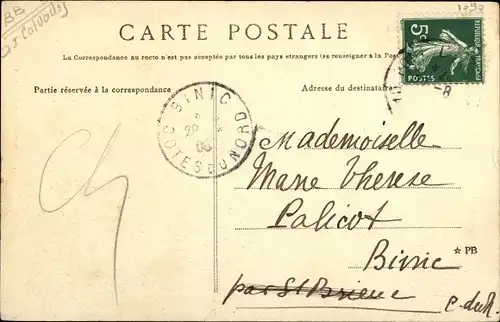 BB
Calvados
CARTE POSTALE
5c
POSTES
La Correspondance au recto n'est pas acceptée par tous pays étrangers (se renseigner à la Poste
Partie réservée à la correspondance
Adresse du destinataire
BINIC
COTES DU NORD
Mademoiselle
Marie Therese
Palicot
Binic
★ PB
par St Brieuc
C-du-N